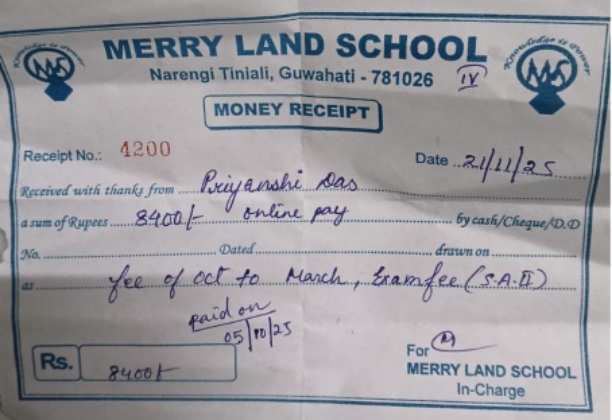 Knowledge is Power
Knowledge is Power
MLS
MERRY LAND SCHOOL
MLS
Narengi Tiniali, Guwahati - 781026 IV
MONEY RECEIPT
Receipt No.: 4200 Date ..21/11/25
Received with thanks from ..... Priyanshi Das
a sum of Rupees ..... 8400/- online pay ..... by cash/Cheque/D.D
No. ..... Dated ..... drawn on .....
as ..... fee of Oct to March, Exam fee (S.A-II)
paid on
05/10/25
Rs. 8400/-
For
MERRY LAND SCHOOL
In-Charge